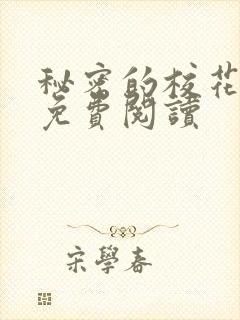 秘密的校花
免費閱讀
宋學春